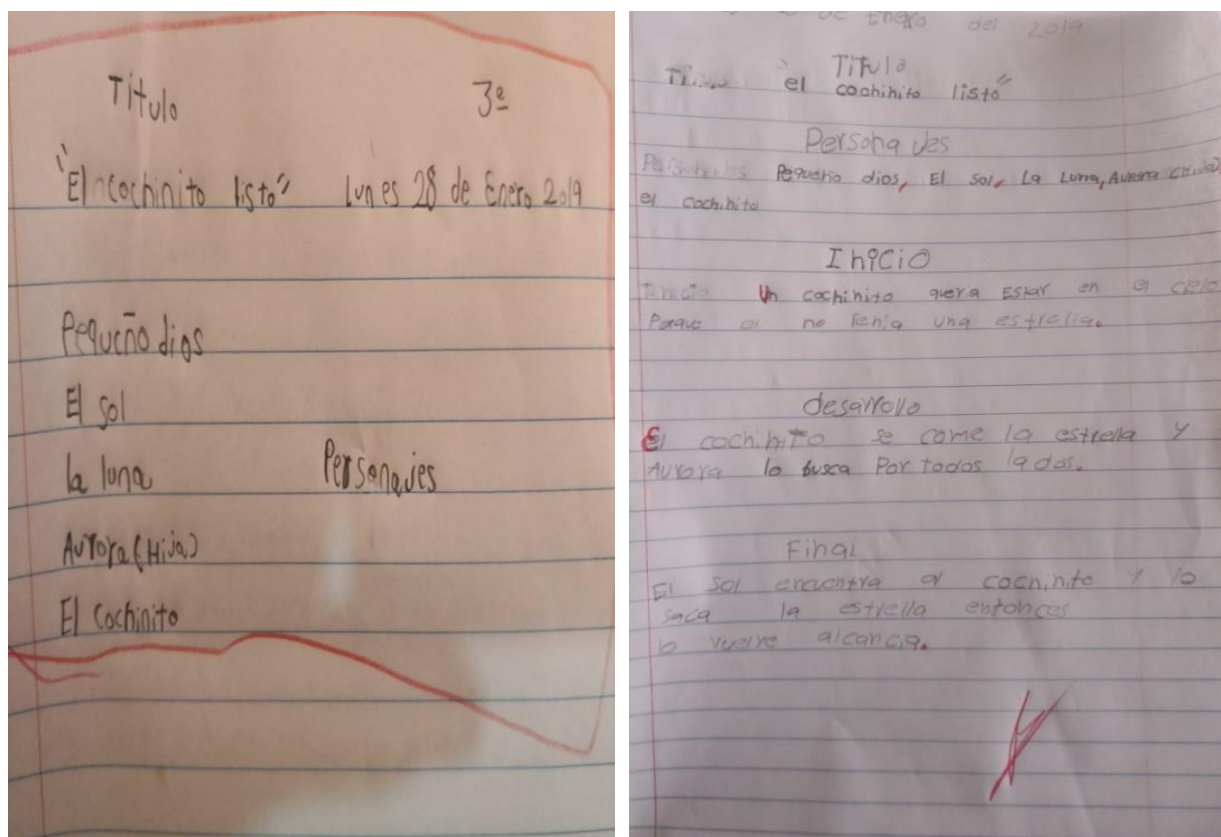 Titulo 3º
"El cochinito listo" Lunes 28 de Enero 2019
Pequeño dios
El sol
la luna Personajes
Aurora (Hija)
El Cochinito
de Enero del 2019
Titulo
"el cochinito listo"
Personajes
Pequeño dios, El sol, La Luna, Aurora (Hija),
el cochinito
Inicio
Un cochinito queria Estar en el cielo
Porque el no tenia una estrella.
desarrollo
El cochinito se come la estrella y
Aurora lo busca Por todos lados.
Final
El Sol encuentra al cochinito y lo
saca la estrella entonces
lo vuelve alcancia.